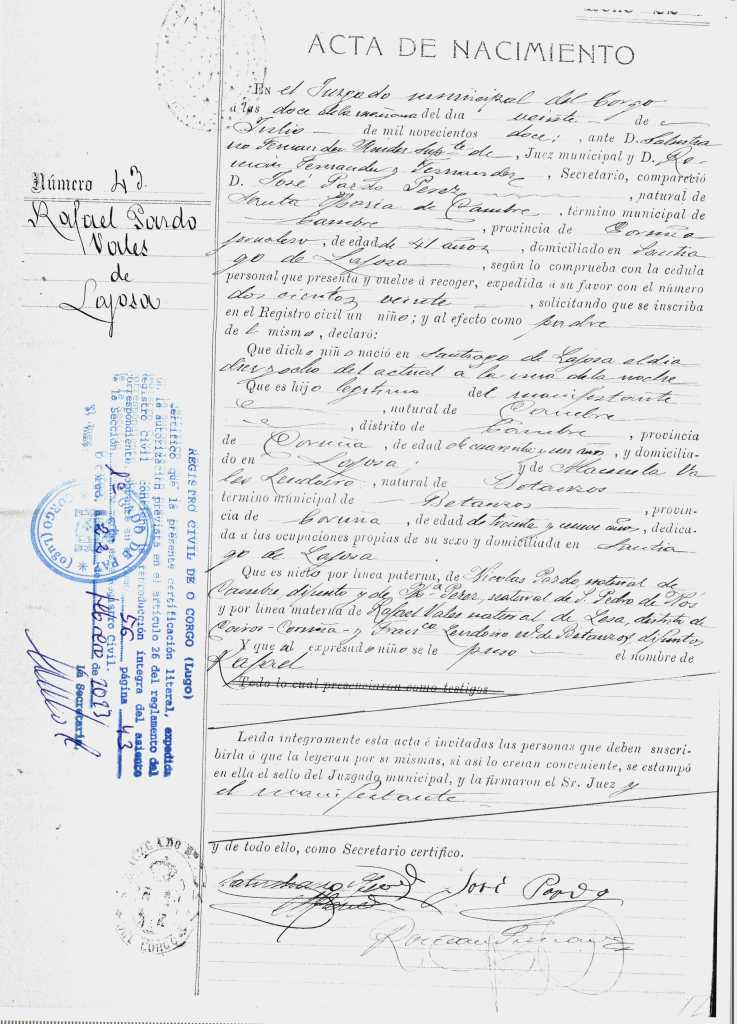 ACTA DE NACIMIENTO
En el Juzgado municipal del Corgo
a las doce de la mañana del día veinte de
Julio de mil novecientos doce; ante D. Saturni
no Fernandez Mendez Sup.te de, Juez municipal y D. Ro-
mán Fernandez y Fernandez, Secretario, compareció
D. José Pardo Perez, natural de
Santa María de Cambre, término municipal de
Cambre, provincia de Coruña
, de edad de 41 años, domiciliado en Santia
go de Lajosa, según lo comprueba con la cédula
personal que presenta y vuelve á recoger, expedida á su favor con el número
dos cientos veinte, solicitando que se inscriba
en el Registro civil un niño; y al efecto como padre
de l mismo, declaró:
Que dicho niño nació en Santiago de Lajosa el dia
diez y ocho del actual a la una de la noche
Que es hijo legitimo del manifestante
, natural de Cambre
, distrito de Cambre, provincia
de Coruña, de edad de cuarenta y un años, y domicilia-
do en Lajosa y de Manuela Va
les Lendoiro, natural de Betanzos
término municipal de Betanzos, provin-
cia de Coruna, de edad de veinte y nueve años, dedica-
da a las ocupaciones propias de su sexo y domiciliada en Santia
go de Lajosa.
Que es nieto por línea paterna, de Nicolas Pardo, natural de
Cambre, difunto y de M.ª Perez, natural de S. Pedro de Nós
y por línea materna de Rafael Vales natural de Lesa, distrito de
Coiros-Coruña- y Fran.ca Lendoiro n.l de Betanzos, difuntos
Y que al expresado niño se le puso el nombre de
Rafael
Todo lo cual presenciaron como testigos
Leída íntegramente esta acta é invitadas las personas que deben suscri-
birla á que la leyeran por sí mismas, si así lo creían conveniente, se estampó
en ella el sello del Juzgado municipal, y la firmaron el Sr. Juez y
el manifestante
y de todo ello, como Secretario certifico.
José Pardo
Número 43
Rafael Pardo
Vales
de
Lajosa
REGISTRO CIVIL DE O CORGO (Lugo)
Certifico que la presente certificación literal, expedida
con la autorización prevista en el artículo 26 del reglamento del
Registro Civil contiene la reproducción íntegra del asiento
correspondiente
56 página 43
de la Sección 1ª Registro Civil.
O Corgo, 22 de de 2023
La Secretaria,
JUZGADO DE PAZ
* CORGO (Lugo) *